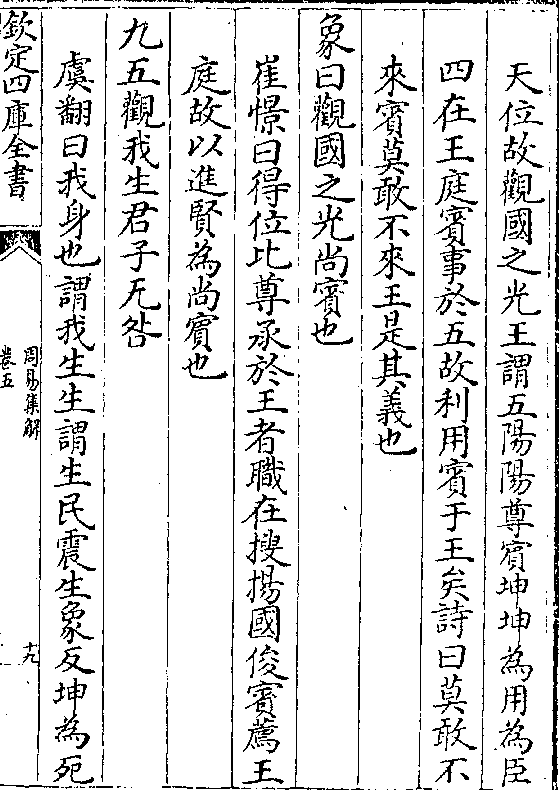 天位故觀國之光王謂五陽陽尊賓坤坤為用為臣
四在王庭賓事於五故利用賓于王矣詩曰莫敢不
來賓莫敢不來王是其義也
象曰觀國之光尚賓也
崔憬曰得位比尊承於王者職在搜揚國俊賓薦王
庭故以進賢為尚賓也
九五觀我生君子无咎
虞翻曰我身也謂我生生謂生民震生象反坤為死
欽定四庫全書
周易集解
卷五
十九